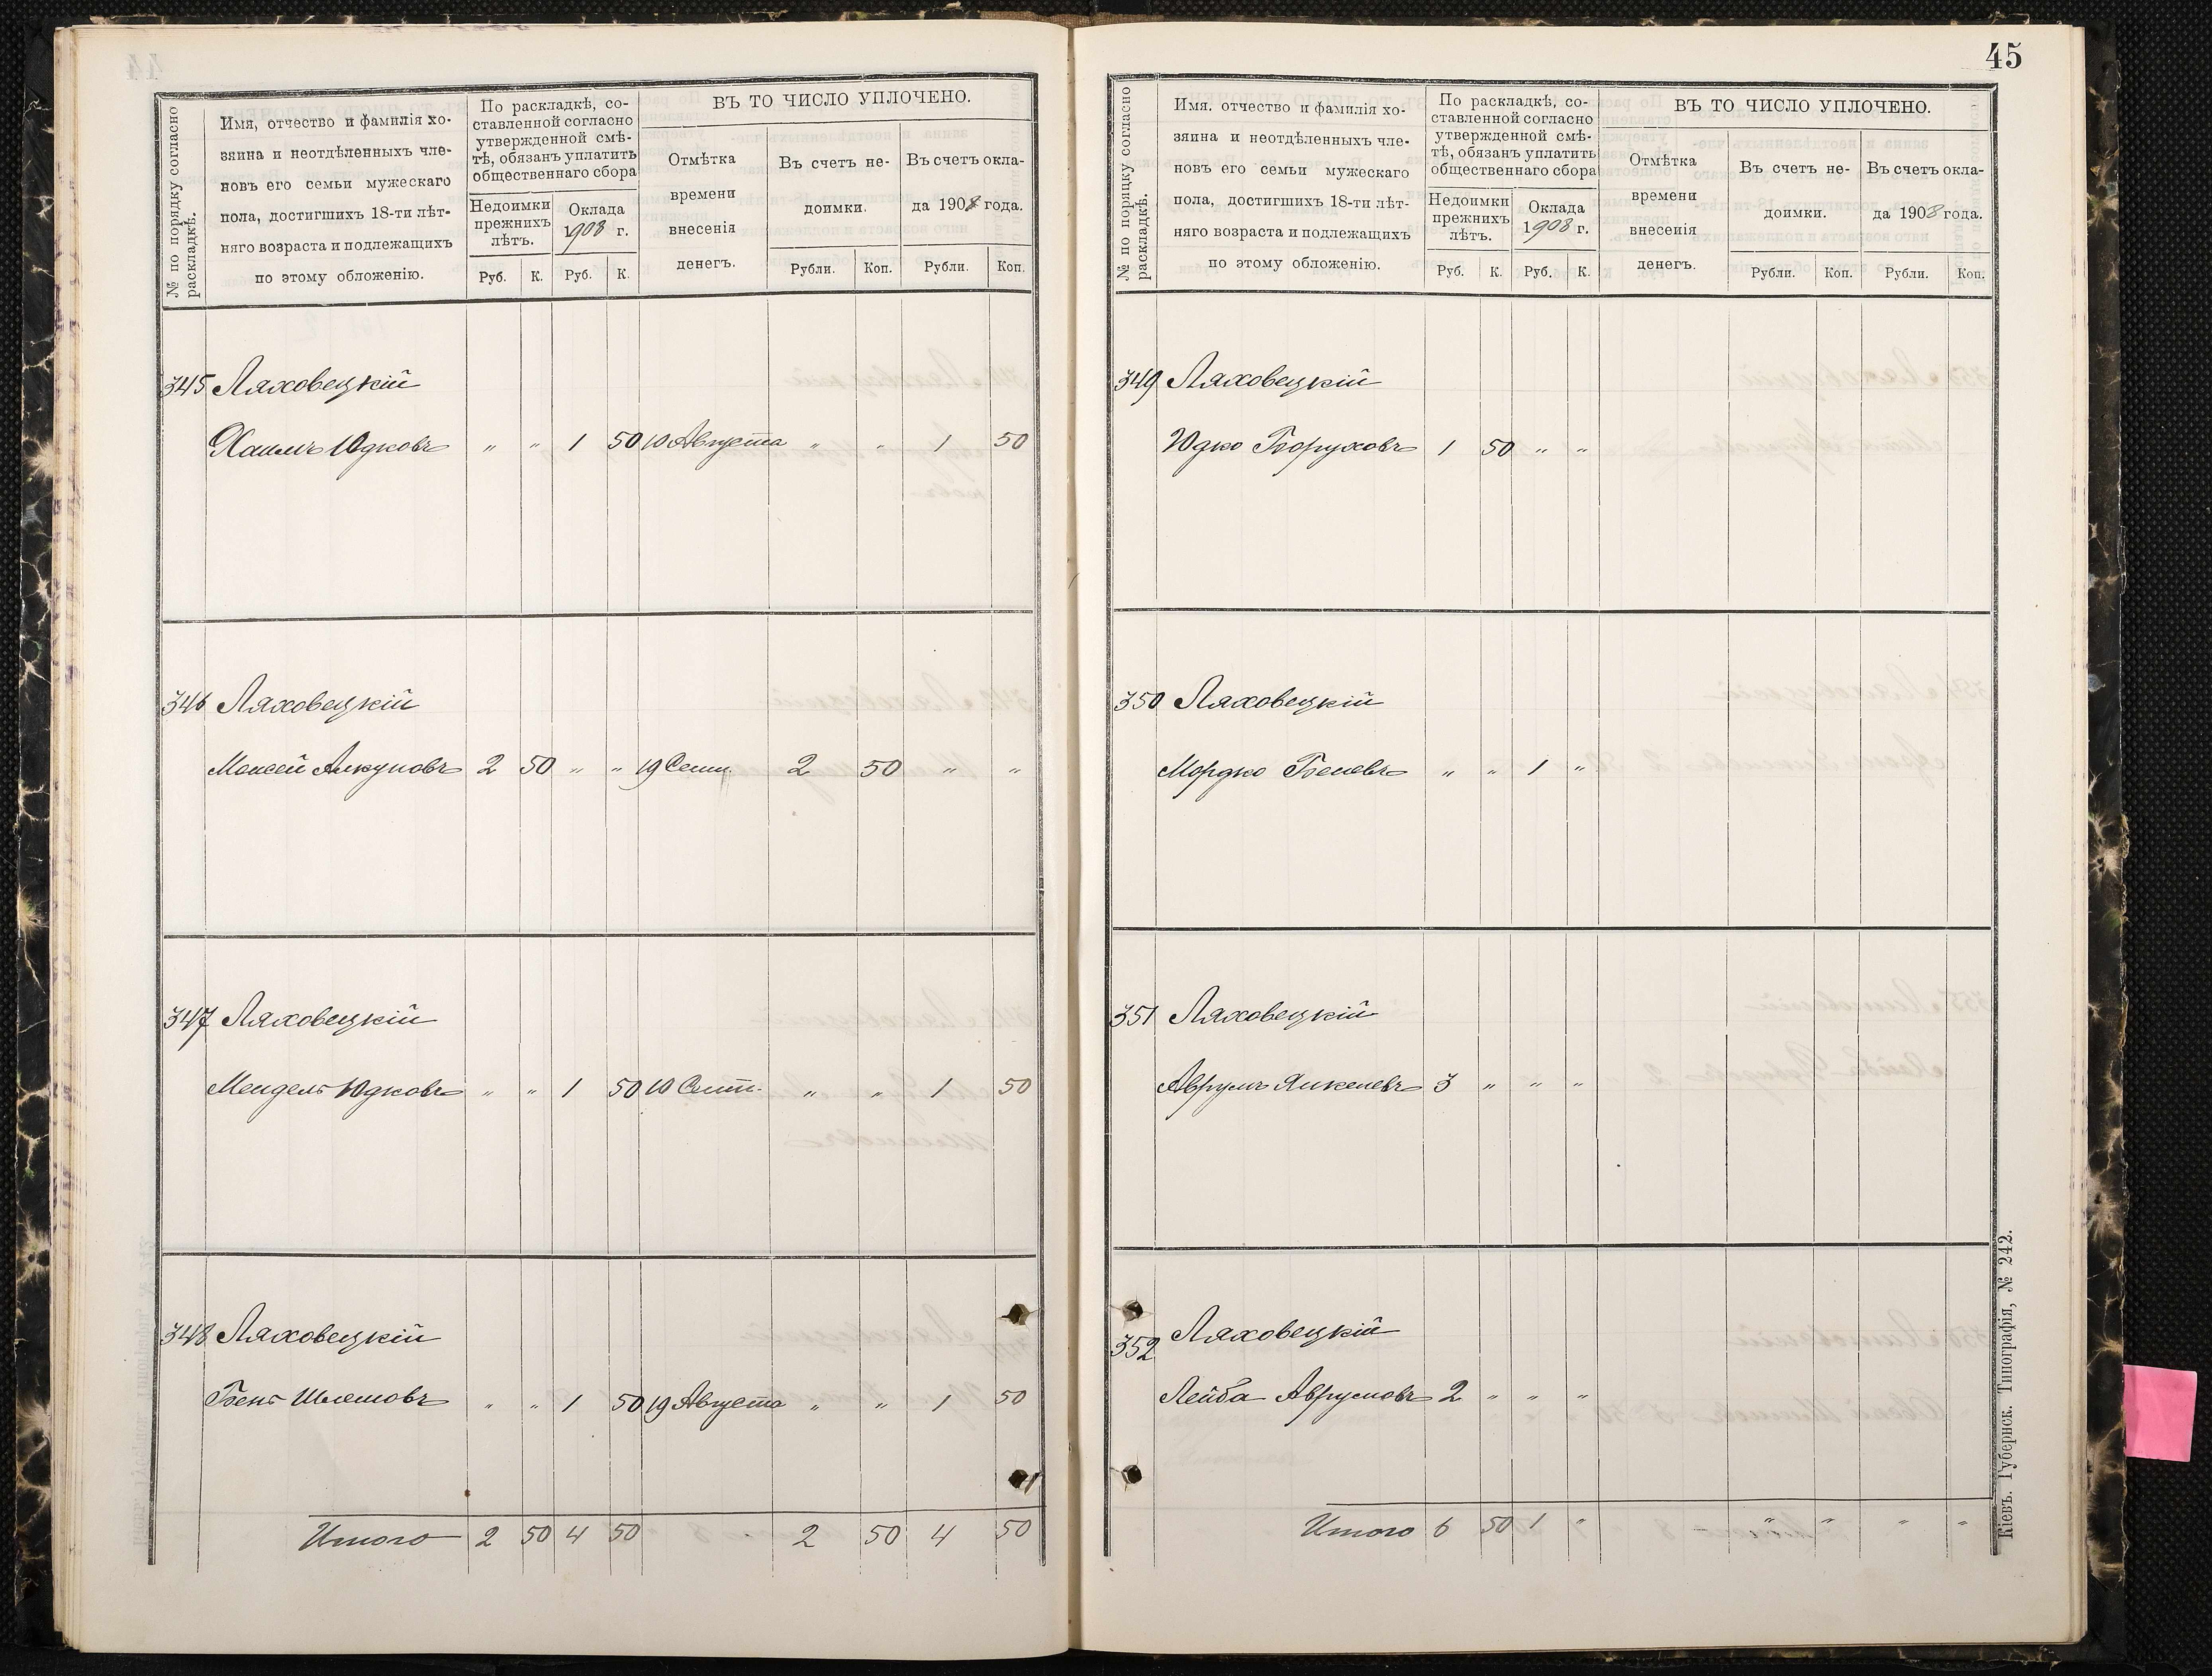 № по порядку согласно
раскладкѣ.
Имя, отчество и фамилія хо-
зяина и неотдѣленныхъ чле-
новъ его семьи мужескаго
пола, достигшихъ 18-ти лѣт-
няго возраста и подлежащихъ
по этому обложенію.
По раскладкѣ, со-
ставленной согласно
утвержденной смѣ-
тѣ, обязанъ уплатить
общественнаго сбора
Недоимки
прежнихъ
лѣтъ.
Оклада
1908 г.
Руб. К. Руб. К.
ВЪ ТО ЧИСЛО УПЛОЧЕНО.
Отмѣтка
времени
внесенія
денегъ.
Въ счетъ не-
доимки.
Въ счетъ окла-
да 1908 года.
Рубли. Коп. Рубли. Коп.
345 Ляховецкій
Хаимъ Юдковъ „ „ 1 50 10 Августа „ „ 1 50
346 Ляховецкій
Моисей 2 50 „ „ 19 Сент. 2 50 „ „
347 Ляховецкій
Мендель Юдковъ „ „ 1 50 10 Сент. „ „ 1 50
348 Ляховецкій
Бенъ Шлемовъ „ „ 1 50 19 Августа „ „ 1 50
Итого 2 50 4 50 2 50 4 50
45
№ по порядку согласно
раскладкѣ.
Имя. отчество и фамилія хо-
зяина и неотдѣленныхъ чле-
новъ его семьи мужескаго
пола, достигшихъ 18-ти лѣт-
няго возраста и подлежащихъ
по этому обложенію.
По раскладкѣ, со-
ставленной согласно
утвержденной смѣ-
тѣ, обязанъ уплатить
общественнаго сбора
Недоимки
прежнихъ
лѣтъ.
Оклада
1908 г.
Руб. К. Руб. К.
ВЪ ТО ЧИСЛО УПЛОЧЕНО.
Отмѣтка
времени
внесенія
денегъ.
Въ счетъ не-
доимки.
Въ счетъ окла-
да 1908 года.
Рубли. Коп. Рубли. Коп.
349 Ляховецкій
Юдко Боруховъ 1 50 „ „
350 Ляховецкій
Мордко Беневъ „ „ 1 „
351 Ляховецкій
Аврумъ Янкелевъ 3 „ „ „
352 Ляховецкій
Лейба Аврумовъ 2 „ „ „
Итого 6 50 1 „ „ „ „ „
Кіевъ. Губернск. Типографія, № 242.